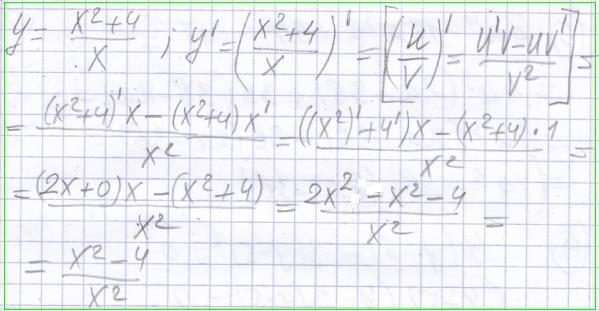 y = (x²+4)/x ; y' = ((x²+4)/x)' = [(u/v)' = (u'v-uv')/v²] =
= ((x²+4)'x-(x²+4)x')/x² = (((x²)'+4')x-(x²+4)·1)/x² =
= ((2x+0)x-(x²+4))/x² = (2x²-x²-4)/x² =
= (x²-4)/x²